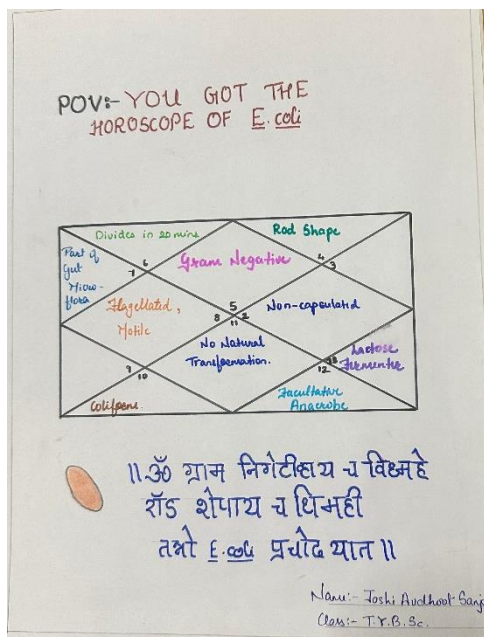 POV:- YOU GOT THE
HOROSCOPE OF E. coli
Divides in 20 mins
Rod Shape
Part of
Gut
Micro-
flora
6
7
Gram Negative
4
3
Flagellated,
Motile
5
8 2
11
Non-capsulated
No Natural
Transformation.
Lactose
Fermenter
9
10
12
Coliforms.
Facultative
Anaerobe
॥ॐ ग्राम निगेटीव्हाय च विध्महे
रॉड शेपाय च धिमही
तन्नो E. coli प्रचोदयात॥
Name:- Joshi Audhoot Sanj
Class:- T.Y.B.Sc.